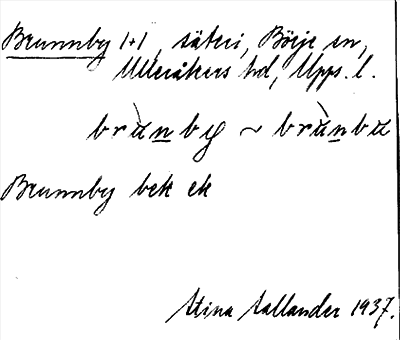 Brunnby 1+1, säteri, Börje sn,
Ulleråkers hd, Upps. l.
brùnby ~ brùnbu
Brunnby bek ek
Stina Sallander 1937.